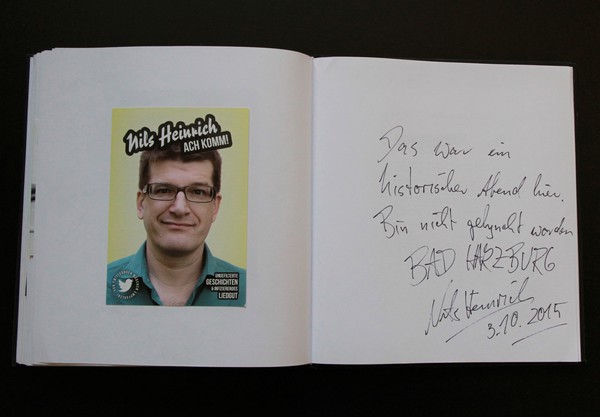 Nils Heinrich
ACH KOMM!
UNGEFILTERTE
GESCHICHTEN
& INFIZIERENDES
LIEDGUT
Das war ein
historischer Abend hier.
Bin nicht gelyncht worden
BAD HARZBURG
Nils Heinrich
3.10.2015